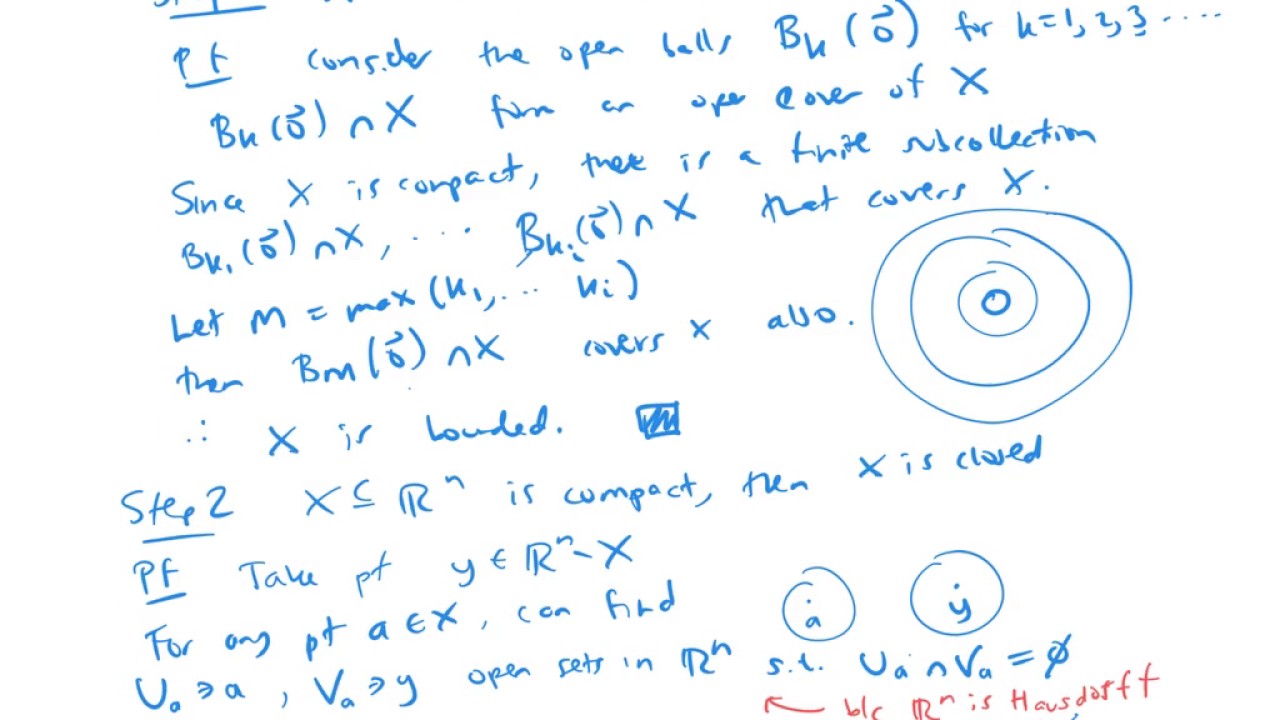 Pf consider the open balls Bₖ(0⃗) for k=1,2,3 ....
Bₖ(0⃗) ∩ X form an open cover of X
Since X is compact, there is a finite subcollection
Bₖ₁(0⃗) ∩ X, ... Bₖᵢ(0⃗) ∩ X that covers X.
Let M = max(k₁, ... kᵢ)
then B_M(0⃗) ∩ X covers X also.
∴ X is bounded.
Step 2 X ⊆ ℝⁿ is compact, then X is closed
Pf Take pt y ∈ ℝⁿ - X
For any pt a ∈ X, can find
a y
Uₐ ∋ a, Vₐ ∋ y open sets in ℝⁿ s.t. Uₐ ∩ Vₐ = ∅
← b/c ℝⁿ is Hausdorff